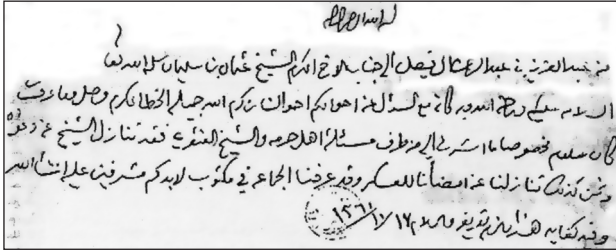 بسم الله الرحمن الرحيم
من عبد العزيز بن عبد الرحمن ال فيصل الى جناب الاخ المكرم الشيخ عثمان بن سليمان سلمه الله تعالى
السلام عليكم ورحمة الله وبركاته مع السؤال عن احوالكم احوالنا بكرم الله جميله الخط المكرم وصل وما عرفت
كان معلوم مخصوصا ما اشرت اليه من طرف مسئلة اهل حرمه والشيخ العنقري فقد تنازل الشيخ عن دعواه
ونحن كذلك تنازلنا عن امضائنا للعسكر وقد عرفنا الجماعه في مكتوب لابدكم مشرفين عليه انشاء الله
وفيه كفايه هذا ما لزم تعريفه والسلام